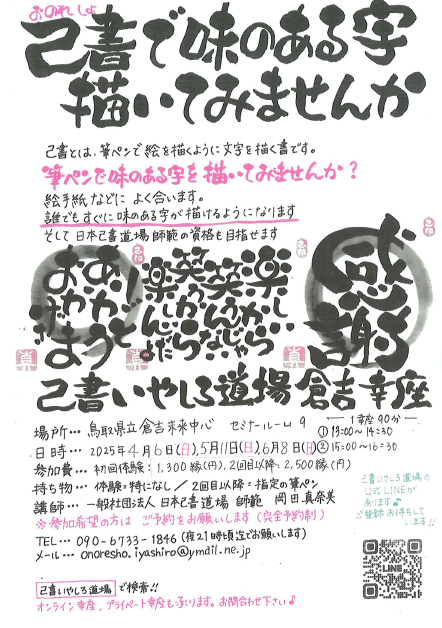 おのれしょ
己書で味のある字
描いてみませんか
己書とは、筆ペンで絵を描くように文字を描く書です。
筆ペンで味のある字を描いてみませんか？
絵手紙などに よく合います。
誰でもすぐに味のある字が描けるようになります
そして 日本己書道場 師範の資格も目指せます
感謝
楽しいから
笑うんじゃなく
笑うから
楽しいんだよ。
ありがとう！
おかげさま
己書いやしろ道場 倉吉幸座
場所… 鳥取県立 倉吉未来中心 セミナールーム9
日時… 2025年4月6日(日),5月11日(日),6月8日(日)
1幸座90分
①13:00〜14:30
②15:00〜16:30
参加費… 初回体験:1,300縁(円),2回目以降:2,500縁(円)
持ち物… 体験=特になし / 2回目以降=指定の筆ペン
講師… 一般社団法人 日本己書道場 師範 岡田真奈美
※参加希望の方は ご予約をお願いします(完全予約制)
TEL… 090-6733-1846 (夜21時頃迄でお願いします)
メール… onoresho.iyashiro@ymail.ne.jp
己書いやしろ道場の
公式LINEが
あります♪
ご登録お待ちして
います!!
LINE
己書いやしろ道場 で検索!!
オンライン幸座,プライベート幸座も承ります。お問合わせ下さい♪